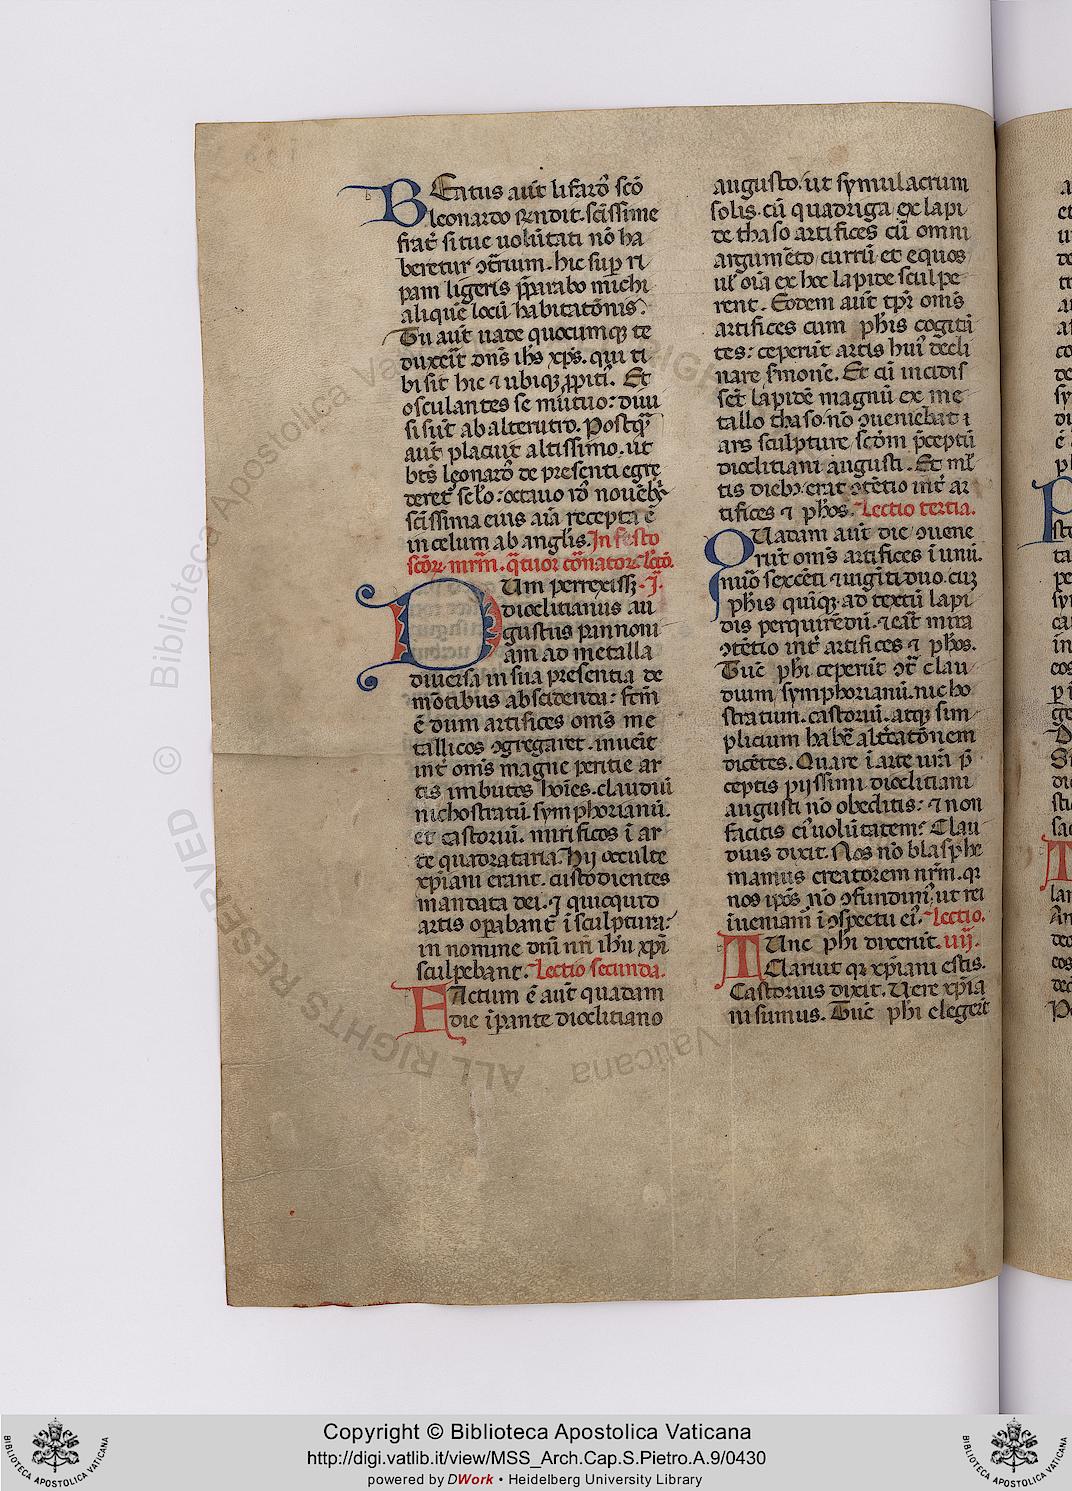 BEatus aut̄ lifard᷒ sc̄o
leonardo rn̄dit. sc̄issime
frat̄ si tue uolūtati nō ha
beretur ꝯt̄rium. hic suꝑ ri
pam ligeris p̄parabo michi
aliquē locū habitatōnis.
Tu aut̄ uade quocumqꝫ te
duxerit dn̄s ih̄s xp̄s. qui ti
bi sit hic ⁊ ubiqꝫ ꝓpiti᷒. Et
osculantes se mūtuo: diui
si sūt ab alterutro. Postqᷓ
aut̄ placuit altissimo. ut
bt̄s leonard᷒ de presenti egre
deret̄ sclo: octauo id᷒ nouēbr̄
sc̄issima eius aīa recepta ē
in celum ab angl̄is. In festo
sc̄oꝝ mr̄m. qᷓtuor coronatoꝝ lc̄o.
CUm perrexissꝫ .j̄.
dioclitianus au
gustus pannoni
am ad metalla
diuersa in sua presentia de
mōtibus abscidenda: fc̄m
ē dum artifices om̄s me
tallicos ꝯgregaret. inuēit
int̄ om̄s magne peritie ar
tis imbutos hoīes. claudiū
nichostratū symphorianū.
et castoriū. mirificos ī ar
te quadrataria. Hij occulte
xp̄iani erant. custodientes
mandata dei. ⁊ quicquid
artis oꝑabant̄ ī sculptura:
in nomine dn̄i nr̄i ih̄u xp̄i
sculpebant. Lectio secunda.
FActum ē aut̄ quadam
die īperante dioclitiano
augusto. ut symulacrum
solis. cū quadriga ex lapi
de thaso artifices cū omni
argumēto currū et equos
ul̄ oīa ex hoc lapide sculpe
rent. Eodem aut̄ tp̄r om̄s
artifices cum ph̄is cogitā
tes: ceperūt artis hui᷒ decli
nare s̄monē. Et cū incidis
sēt lapidē magnū ex me
tallo thaso. nō ꝯueniebat ī
ars sculpture sc̄dm p̄ceptū
dioclitiani augusti. Et ml̄
tis dieb᷒ erat ꝯtētio int̄ ar
tifices ⁊ ph̄os. Lectio tertia.
QUadam aut̄ die ꝯuene
rūt om̄s artifices ī unū.
nūo sexcēti ⁊ uigīti duo. cuꝫ
ph̄is quīqꝫ ad textū lapi
dis perquirēdū. ⁊ erat mira
ꝯtētio int̄ artifices ⁊ ph̄os.
Tūc ph̄i ceperūt ꝯt̄ clau
dium symphorianū. nicho
stratum. castoriū. atqꝫ sim
plicium habē alt̄catōnem
dicētes. Quare ī arte ur̄i p̄
ceptis pijssimi dioclitiani
augusti nō obeditis: ⁊ non
facitis ei᷒ uolūtatem: Clau
dius dixit. Nos nō blasphe
mamus creatorem nr̄m. qꝛ
nos ip̄os nō ꝯfundim᷒, ut rei
īueniam̄ ī ꝯspectu ei᷒. Lectio.
TUnc ph̄i dixerūt. iiij.
Claruit qꝛ xp̄iani estis.
Castorius dixit. Uere xp̄ia
ni sumus. Tūc ph̄i elegerūt
© Biblioteca Apostolica Vaticana
ALL RIGHTS RESERVED
Copyright © Biblioteca Apostolica Vaticana
http://digi.vatlib.it/view/MSS_Arch.Cap.S.Pietro.A.9/0430
powered by DWork • Heidelberg University Library
BIBLIOTECA APOSTOLICA VATICANA
BIBLIOTECA APOSTOLICA VATICANA